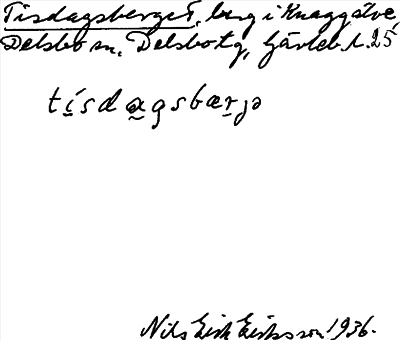 Tisdagsberget, berg i Knaggälve,
Delsbo sn, Delsbo tg, Gävleb. l. 25
tísdagsbærjə
Nils Erik Eriksson 1936.